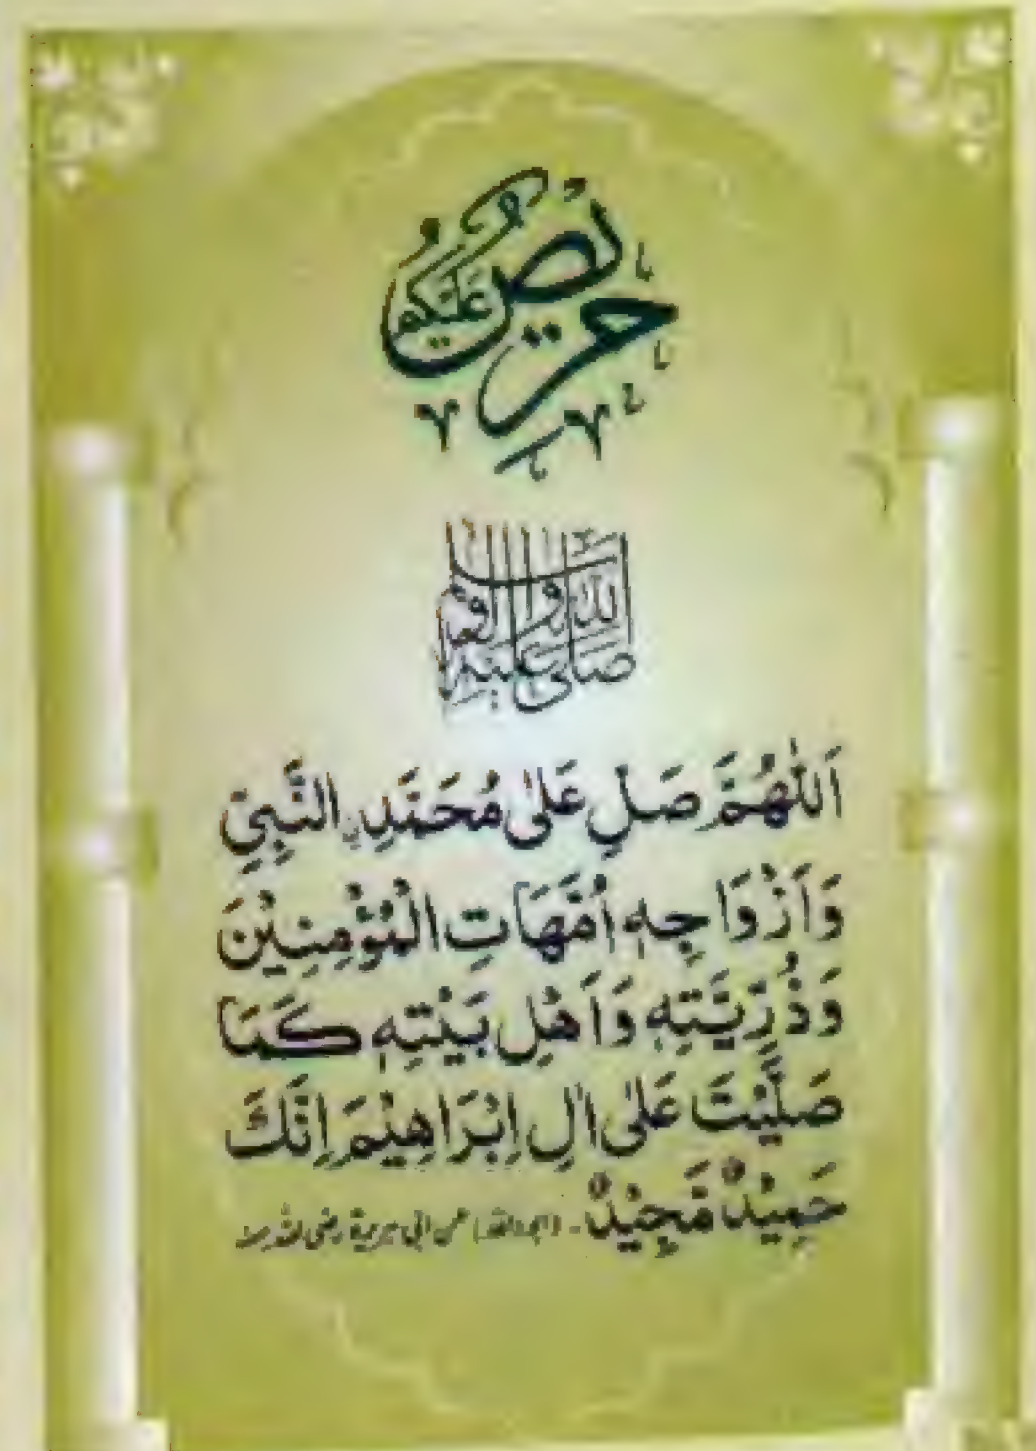 حَرِيْصٌ عَلَيْكُمْ
صلى الله عليه وآله وسلم
اَللّٰهُمَّ صَلِّ عَلٰى مُحَمَّدِ ۣالنَّبِيِّ
وَاَزْوَاجِهٖ اُمَّهَاتِ الْمُؤْمِنِيْنَ
وَذُرِّيَّتِهٖ وَاَهْلِ بَيْتِهٖ كَمَا
صَلَّيْتَ عَلٰى اٰلِ اِبْرَاهِيْمَ اِنَّكَ
حَمِيْدٌ مَّجِيْدٌ۔ (ابوداؤد) عن ابی ہریرۃ رضی اللہ عنہ